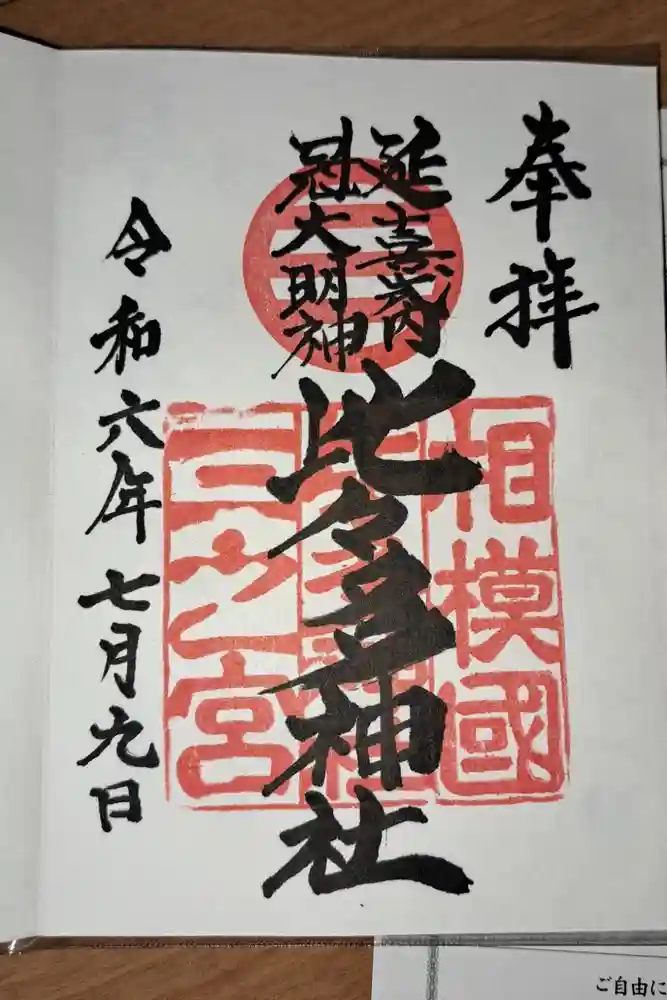 奉拝
延喜式内
冠大明神
比々多神社
相模國
三之宮
令和六年七月九日
ご自由に